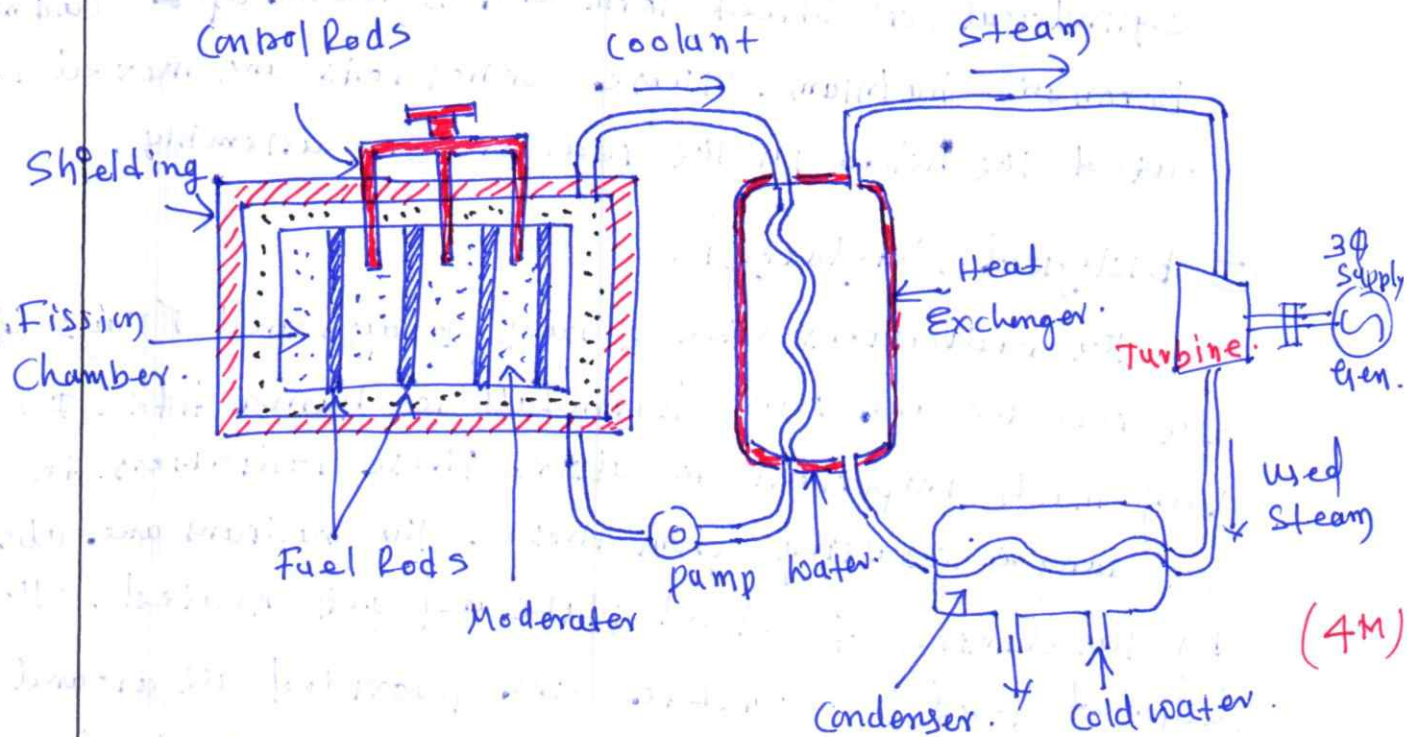 Control Rods
Coolant
Steam
Shielding
Fission
Chamber.
Heat
Exchenger.
3φ
Supply
Turbine.
Gen.
used
Steam
Fuel Rods
Moderater
Pump
water.
Condenser.
Cold water.
(4M)